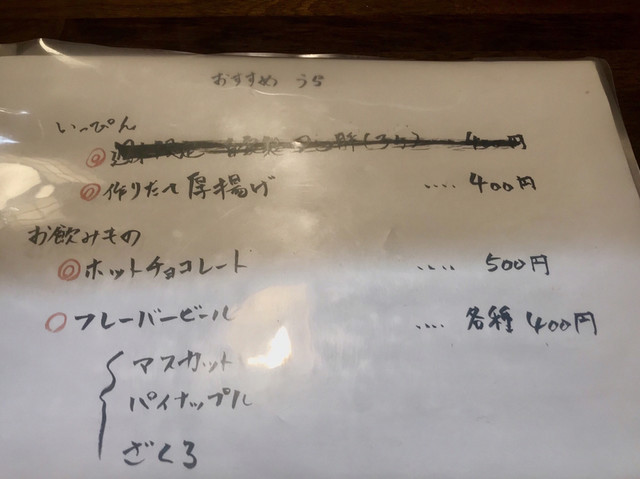 おすすめ うら
いっぴん
400円
◎作りたて厚揚げ .... 400円
お飲みもの
◎ホットチョコレート .... 500円
○フレーバービール .... 各種400円
マスカット
パイナップル
ざくろ